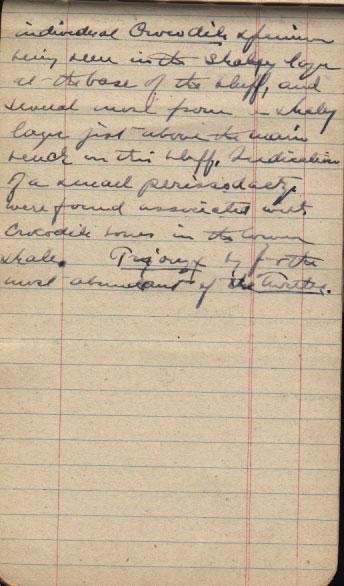 individual Crocodile specimen
being seen in the shaley layer
at the base of the bluff, and
several more from a shaly
layer just above the main
bench on this bluff. Indication
of a small perissodactyl
were found associated with
Crocodile bones in the lower
shale. Trionyx by far the
most abundant of the turtles.